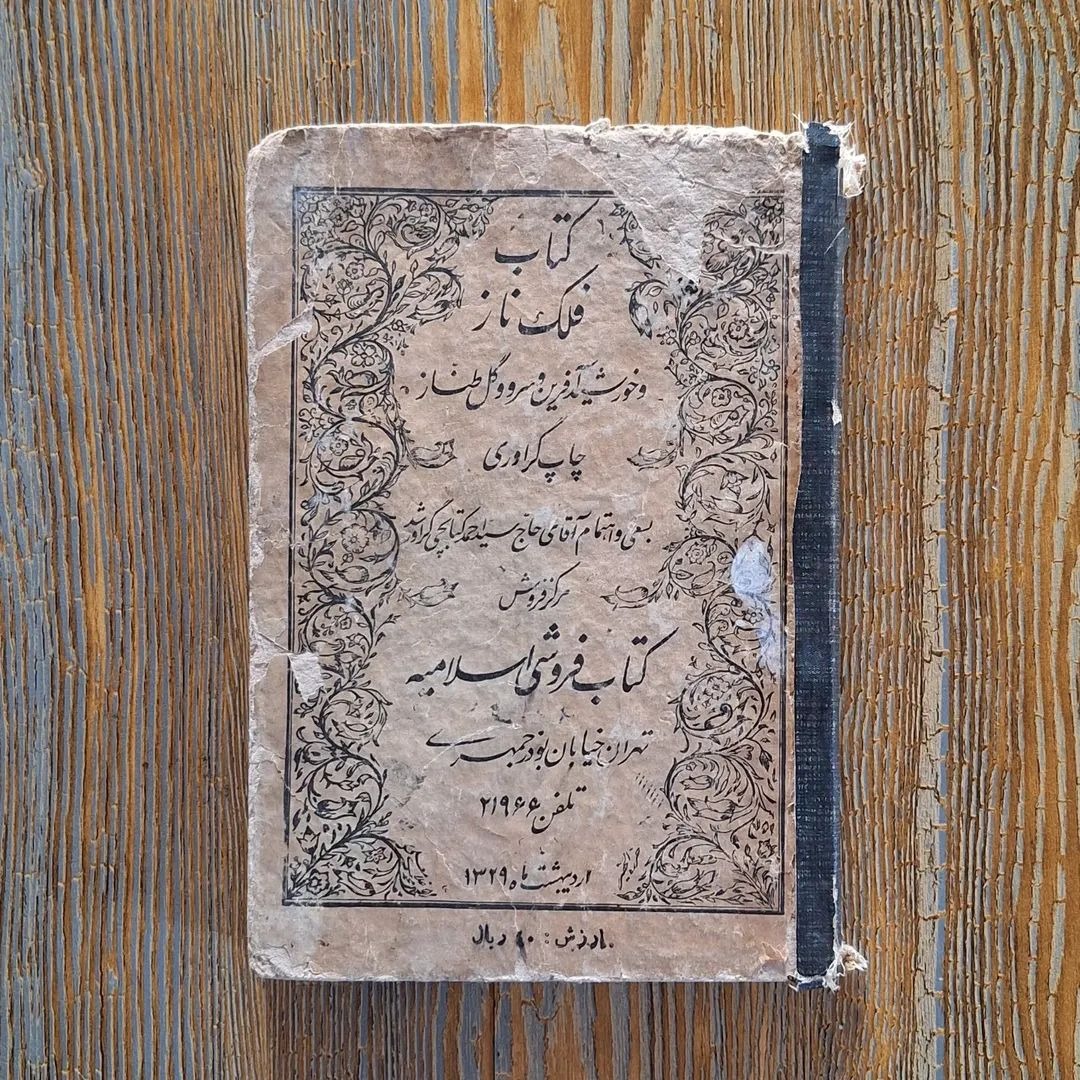 کتاب
فلک ناز
و خورشید آفرین و سرو و گل طناز
چاپ گراوری
بسعی و اهتمام آقای حاج سید احمد کتابچی گراور شد
مرکز فروش
کتاب فروشی اسلامیه
تهران خیابان بوذرجمهری
تلفن ۲۱۹۶۶
اردیبهشت ماه ۱۳۲۹
ارزش: ۴۰ ریال